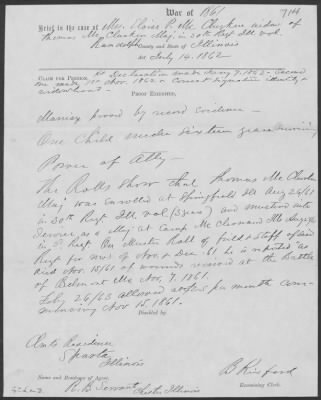 War of 1861
Brief in the case of Mrs. Eloise P. McClurken widow of
Thomas McClurken Maj. in 30th Regt Ill vol.
Randolph County and State of Illinois
Act July 14. 1862
CLAIM FOR PENSION. 1st Declaration was made Aug 7. 1862 - Second
one made Nov. 1862 - Correct Signature Identity &
widowhood -
PROOF EXHIBITED,
Marriage proved by record evidence -
One Child under sixteen years surviving
Power of Atty -
The Rolls Show that Thomas McClurken
Maj was enrolled at Springfield Ills Aug 26/61
in 30th Regt Ill vol (3 years) and mustered into
Service as a Maj at Camp McClernand Ills
in Regt. On Muster Roll of field & Staff of said
Regt for mos of Nov. & Dec. 61 he is reported as
died Nov. 15/61 of wounds received at the Battle
of Belmont Mo Nov. 7. 1861.
Feby 26/63 allowed at per month com-
mencing Nov 15. 1861.
Disability
Clmts Residence
Sparta
Illinois
Examining Clerk.
Name and Residence of Agent,
R. B. Servant
Chester Illinois